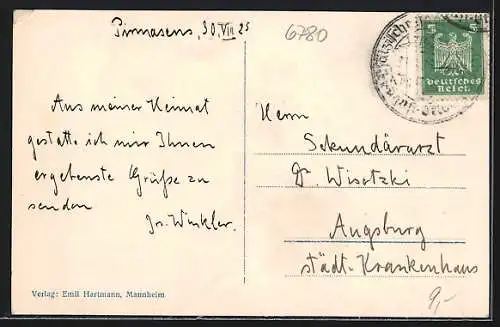 Pirmasens, 30.VIII 25
6780
5 5
Deutsches
Reich
Aus meiner Heimat
gestatte ich mir Ihnen
ergebenste Grüße zu
senden
Dr. Winkler.
Herrn
Sekundärarzt
Dr. Wisotzki
Augsburg
städt. Krankenhaus
9,-
Verlag: Emil Hartmann, Mannheim